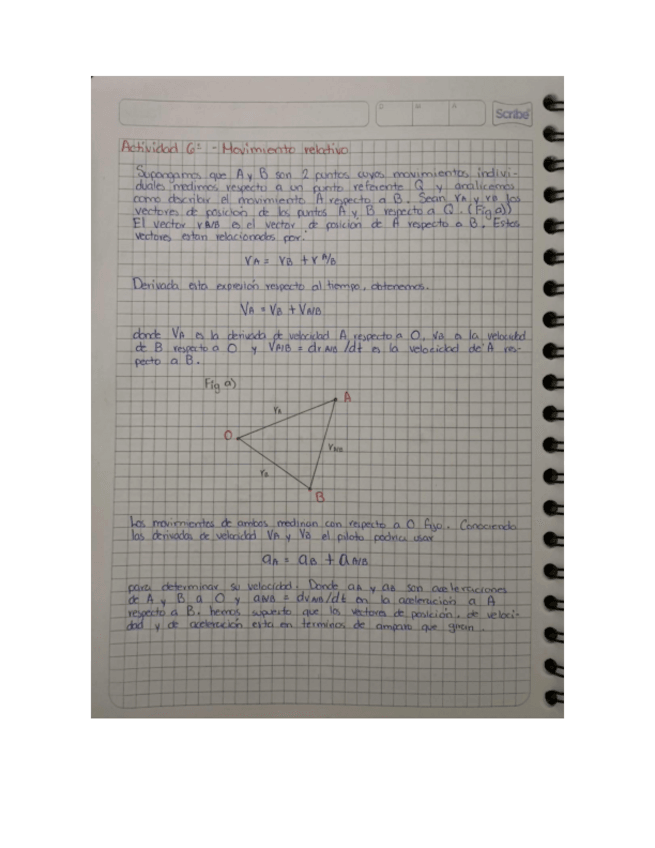 Scribe
Actividad 6: - Movimiento relativo
Supongamos que A y B son 2 puntos cuyos movimientos indivi-
duales medimos respecto a un punto referente O y analicemos
como describir el movimiento A respecto a B. Sean rA y rB los
vectores de posición de los puntos A y B respecto a O. (Fig a))
El vector rA/B es el vector de posición de A respecto a B. Estos
vectores estan relacionados por:
rA = rB + r A/B
Derivada esta expresión respecto al tiempo, obtenemos.
VA = VB + VA/B
donde VA es la derivada de velocidad A respecto a O, VB a la velocidad
de B respecto a O y VA/B = drA/B /dt es la velocidad de A res-
pecto a B.
Fig a)
A
rA
O
rA/B
rB
B
Los movimientos de ambos medinan con respecto a O fijo. Conociendo
las derivadas de velocidad VA y VB el piloto podria usar
aA = aB + aA/B
para determinar su velocidad. Donde aA y aB son aceleraciones
de A y B a O y aA/B = dvA/B/dt en la aceleración a A
respecto a B. hemos supuesto que los vectores de posición, de veloci-
dad y de aceleración esta en terminos de amparo que giran.